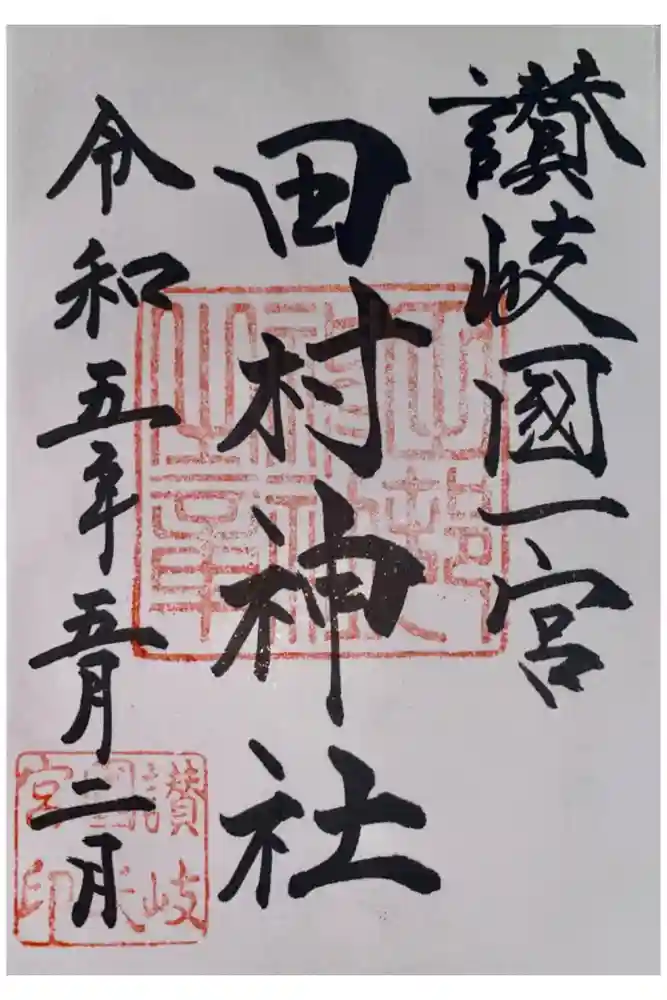 讃岐國一宮
田村神社
令和五年五月二月
讃岐
宮印